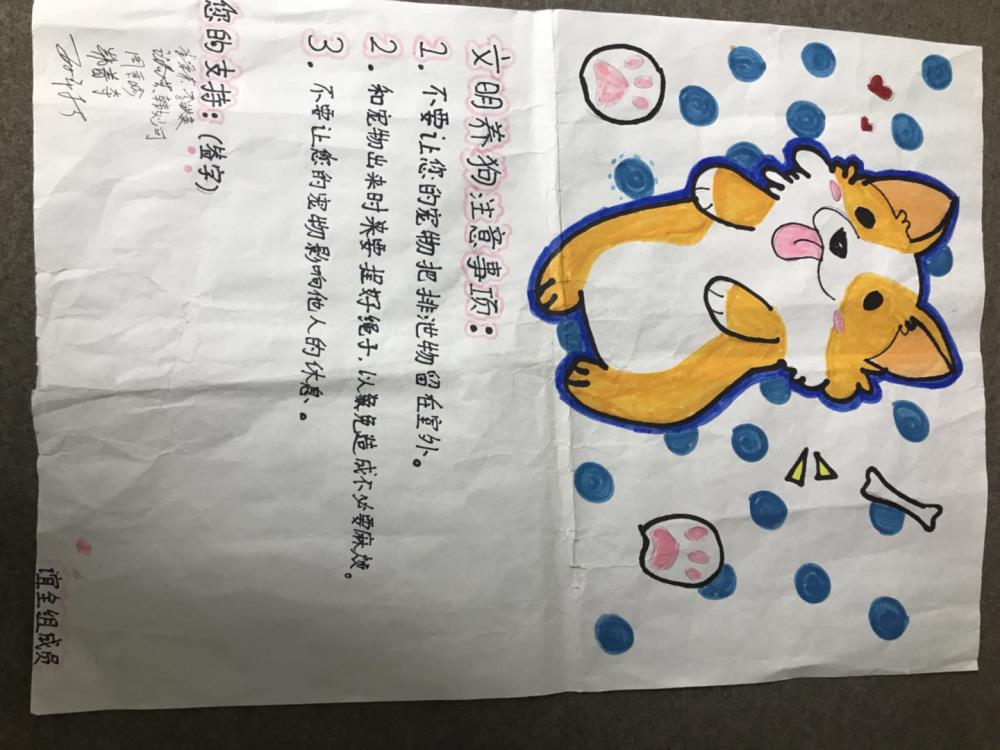 文明养狗注意事项:
1. 不要让您的宠物把排泄物留在室外。
2. 和宠物出来时集要握好绳子,以避免造成不必要麻烦。
3. 不要让您的宠物影响他人的休息、。
您的支持:(签字)
谊全组成员